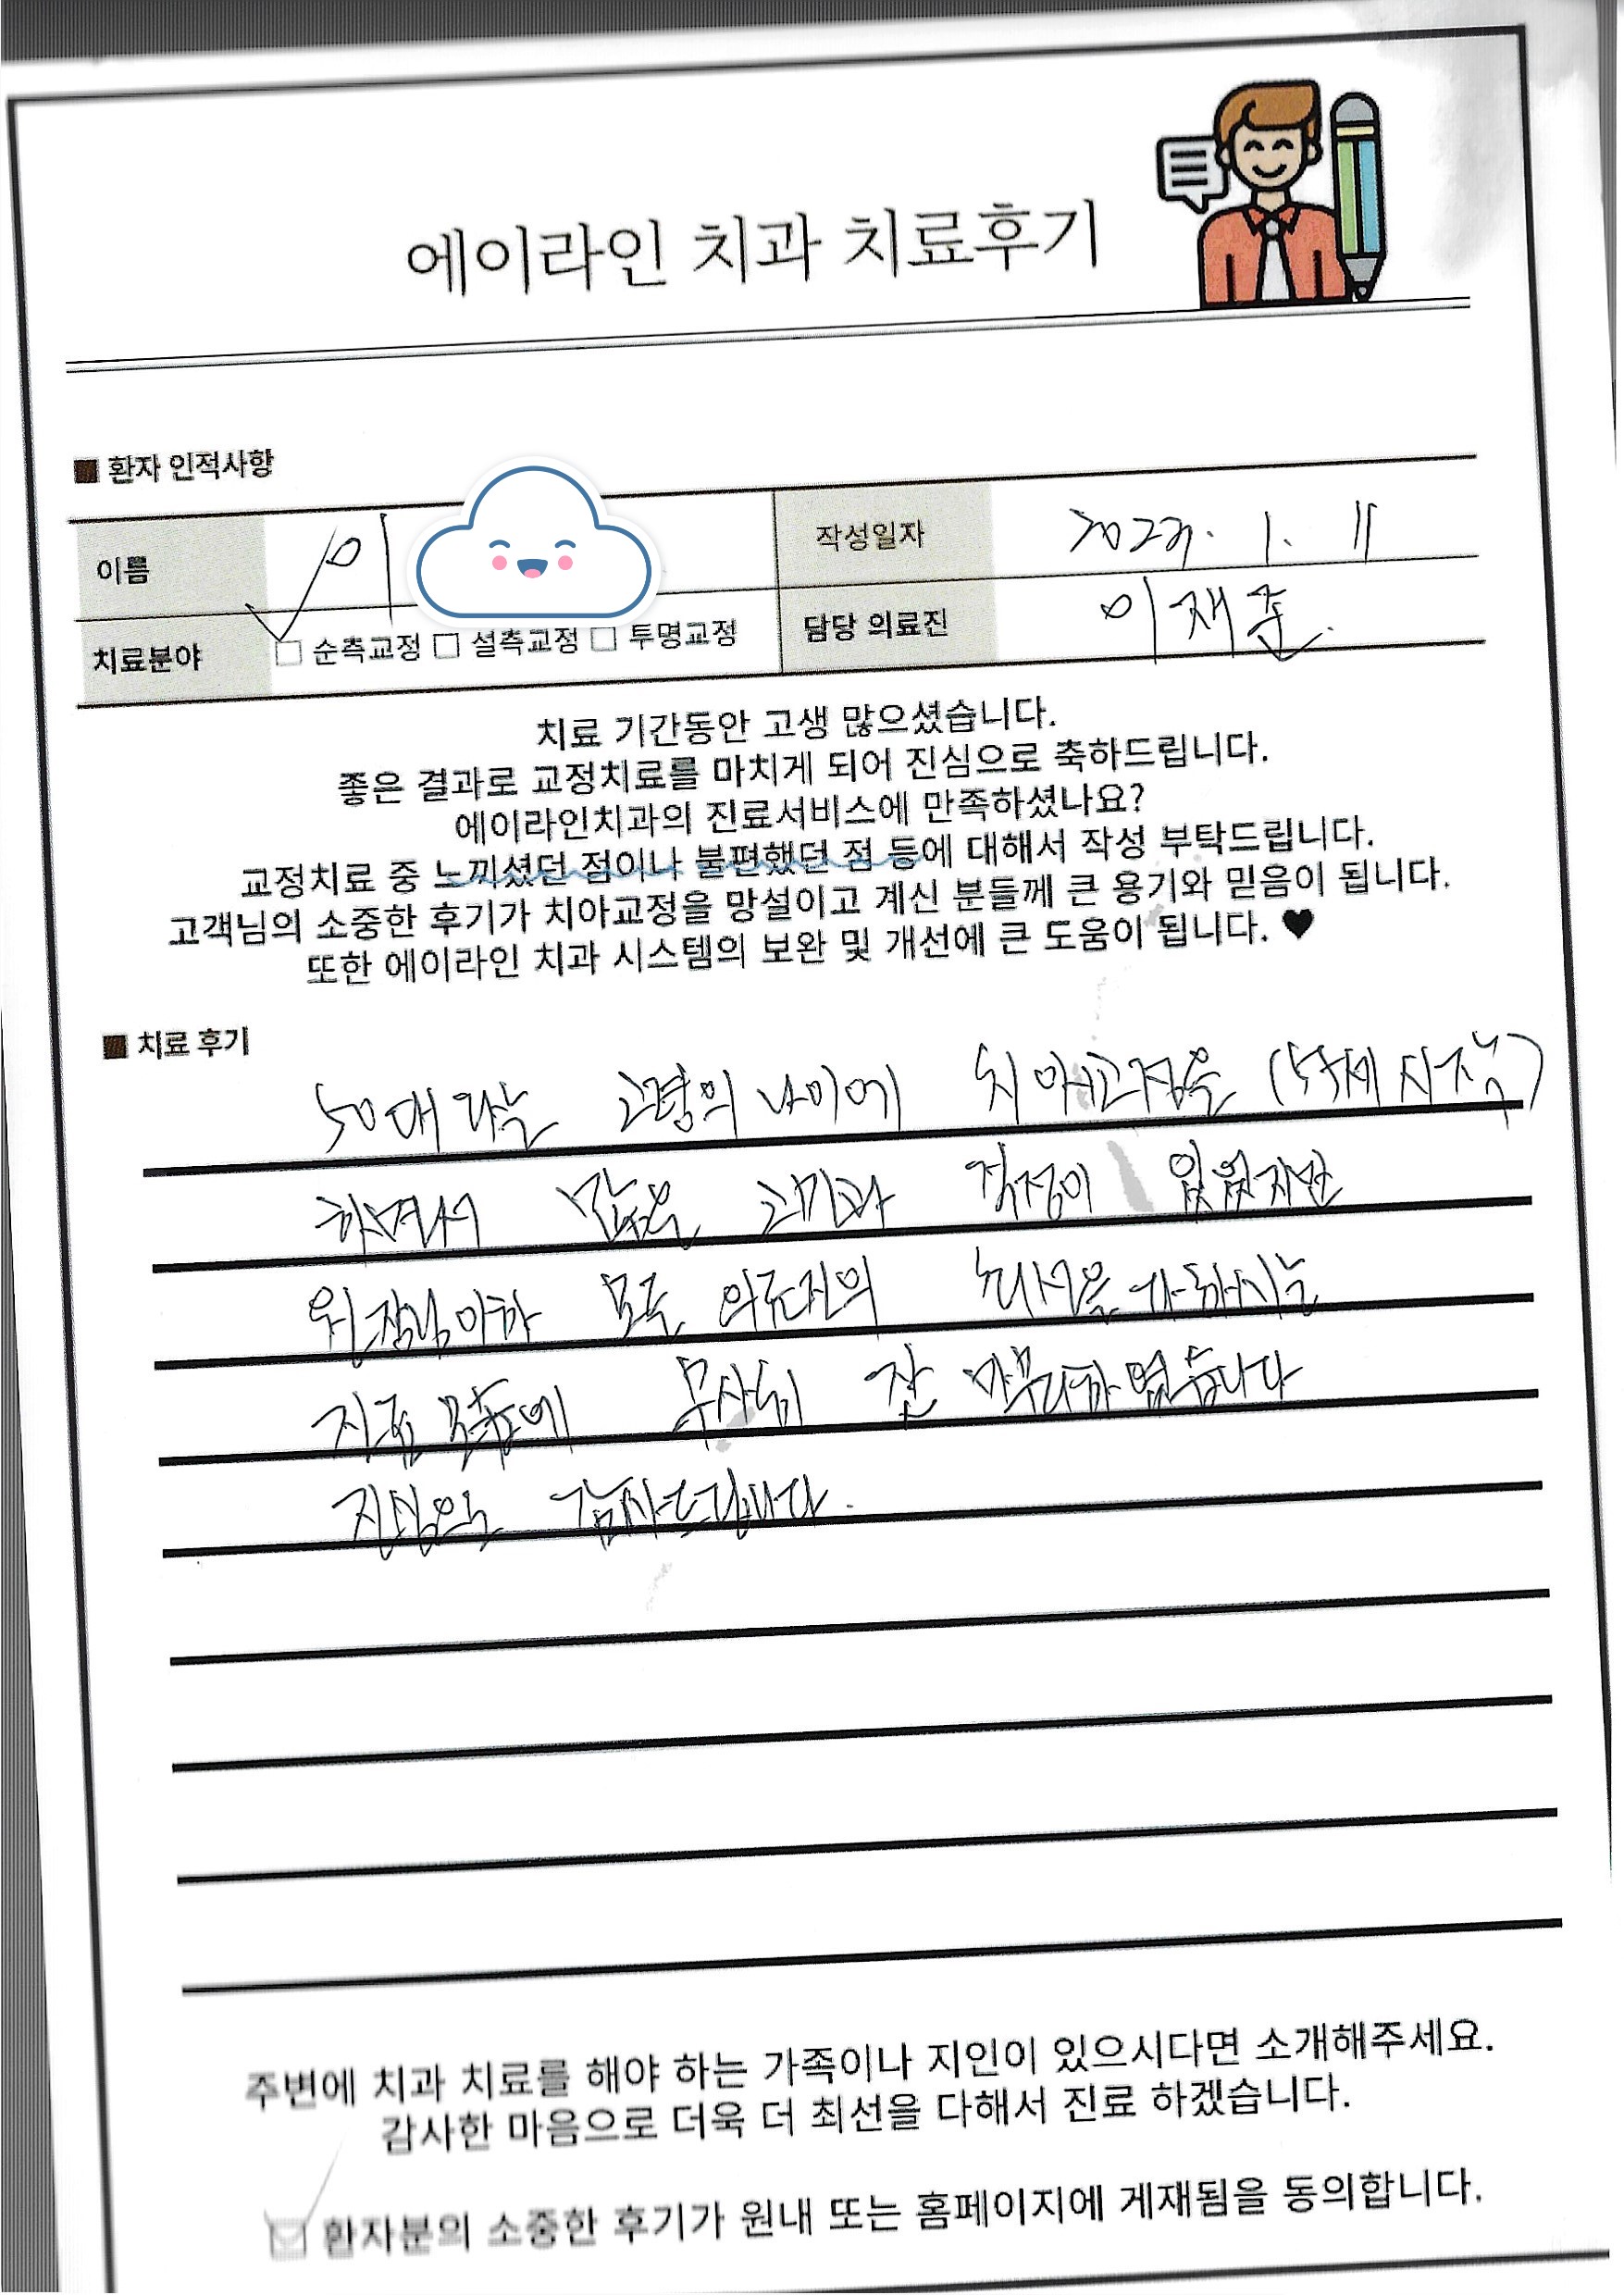 에이라인 치과 치료후기
■ 환자 인적사항
이름 이 작성일자 2022. 1. 11
치료분야 □ 순측교정 □ 설측교정 □ 투명교정 담당 의료진 이재준.
치료 기간동안 고생 많으셨습니다.
좋은 결과로 교정치료를 마치게 되어 진심으로 축하드립니다.
에이라인치과의 진료서비스에 만족하셨나요?
교정치료 중 느끼셨던 점이나 불편했던 점 등에 대해서 작성 부탁드립니다.
고객님의 소중한 후기가 치아교정을 망설이고 계신 분들께 큰 용기와 믿음이 됩니다.
또한 에이라인 치과 시스템의 보완 및 개선에 큰 도움이 됩니다. ♥
■ 치료 후기
50대 라는 고령의 나이에 치아교정을 (5세 시작)
하면서 많은 고민과 걱정이 있었지만
원장님이하 모든 의료진의 최선을 다하시는
진료 덕분에 무사히 잘 마무리하였습니다
진심으로 감사드립니다.
주변에 치과 치료를 해야 하는 가족이나 지인이 있으시다면 소개해주세요.
감사한 마음으로 더욱 더 최선을 다해서 진료 하겠습니다.
환자분의 소중한 후기가 원내 또는 홈페이지에 게재됨을 동의합니다.